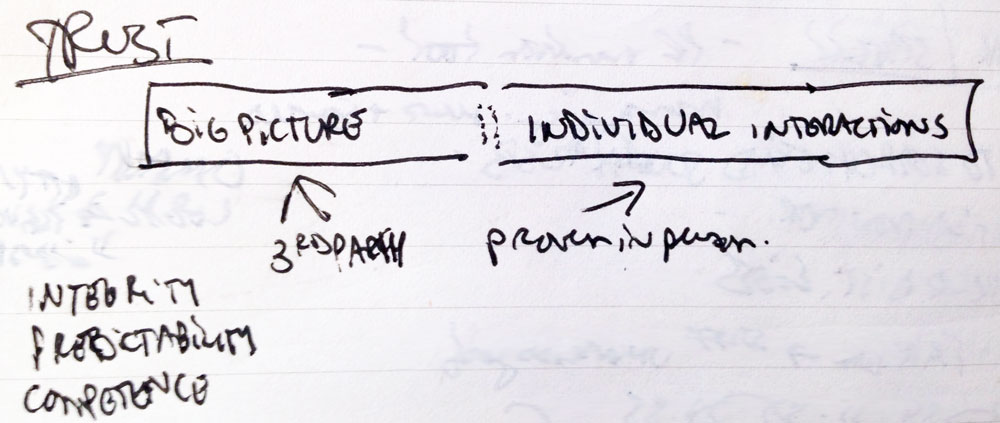 TRUST
BIG PICTURE INDIVIDUAL INTERACTIONS
3RD PARTY proven in person.
INTEGRITY
PREDICTABILITY
COMPETENCE